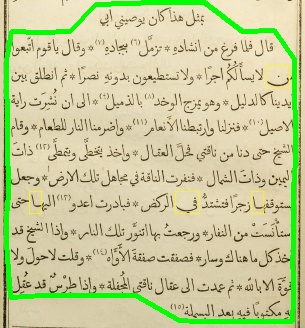 بمثل هذا كان يوصيني ابي
قال فلما فرغ من انشاده تزمل (٦) ببجاده (٧) وقال يا قوم اتبعوا
من لا يسألكم اجرا ولا تستطيعون بدونه نصرا ثم انطلق بين
يدينا كالدليل وهو يمزج الوخد (٨) بالذميل (٩) الى ان نشرت راية
الاصيل (١٠) فنزلنا وارتبطنا الأنعام (١١) واضرمنا النار للطعام وقام
الشيخ حتى دنا من ناقتي فحل العقال واخذ يتخطى ويتمطى (١٢) ذات
اليمين وذات الشمال فنفرت الناقة في مجاهل تلك الارض وجعل
يستوقفها زجرا فتشتد في الركض فبادرت اعدو (١٣) اليها حتى
استأنست من النفار ورجعت بها اتنور تلك الناس واذا الشيخ قد
اخذ كل ما هناك وسار فصفقت صفقة الأواه (١٤) وقلت لا حول ولا
قوة الا بالله ثم عمدت الى عقال ناقتي المجفلة واذا طرس قد عقل
به مكتوبا فيه بعد البسملة (١٥)